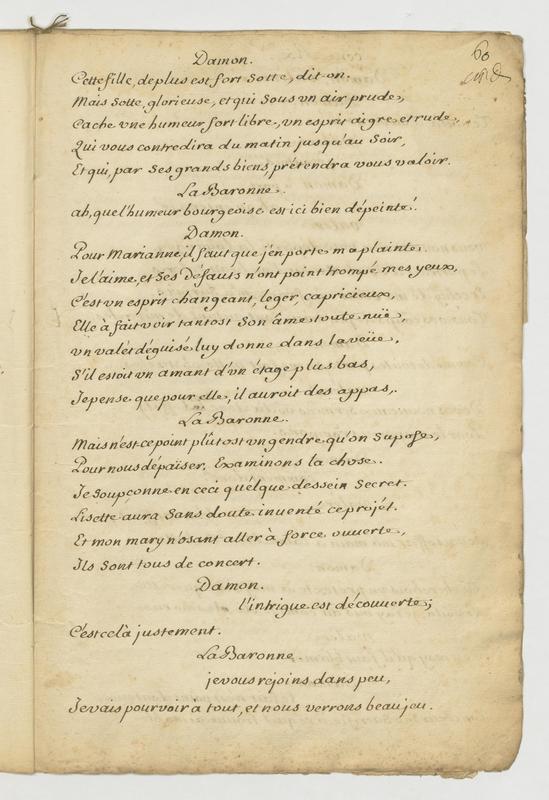 60
Damon.
Cette fille, de plus est fort Sotte, dit-on.
Mais Sotte, glorieuse, et qui Sous vn air prude,
Cache vne humeur fort libre, vn esprit aigre et rude,
Qui vous contredira du matin jusqu'au Soir,
Et qui, par Ses grands biens, prétendra vous valoir.
La Baronne.
ah, quel'humeur bourgeoise est ici bien dépeinte!
Damon.
Pour Marianne, il faut que j'en porte ma plainte.
Je l'aime, et Ses Défauts n'ont point trompé mes yeux,
C'est vn esprit changeant, leger, capricieux,
Elle à fait voir tantost Son âme toute nüe,
vn valet déguisé luy donne dans la veüe,
S'il estoit vn amant d'vn étage plus bas,
Je pense que pour elle, il auroit des appas,
La Baronne.
Mais n'est-ce point plûtost vn gendre qu'on Supose,
Pour nous dépaïser. Examinons la chose.
Je Soupçonne en ceci quélque dessein Secret.
Lisette aura Sans doute inventé ce projét.
Et mon mary n'osant aller à force ouverte,
Ils Sont tous de concert.
Damon.
l'intrigue est découverte;
C'est celà justement.
La Baronne.
je vous rejoins dans peu,
Je vais pourvoir à tout, et nous verrons beau jeu.